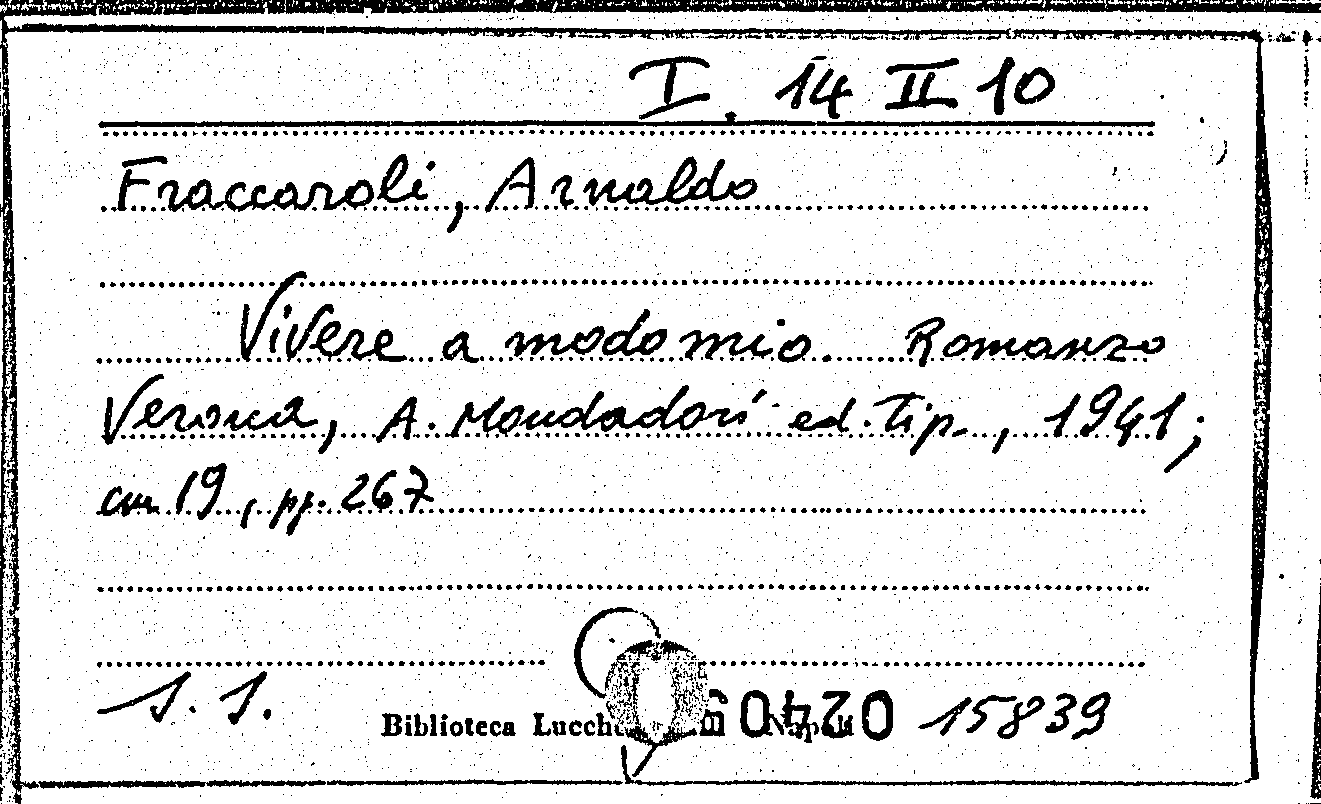 I. 14 II 10
Fraccaroli, Arnaldo
Vivere a modo mio. Romanzo
Verona, A. Mondadori ed. Tip., 1941;
cm 19, pp. 267
S. S.
Biblioteca Napoli 15839